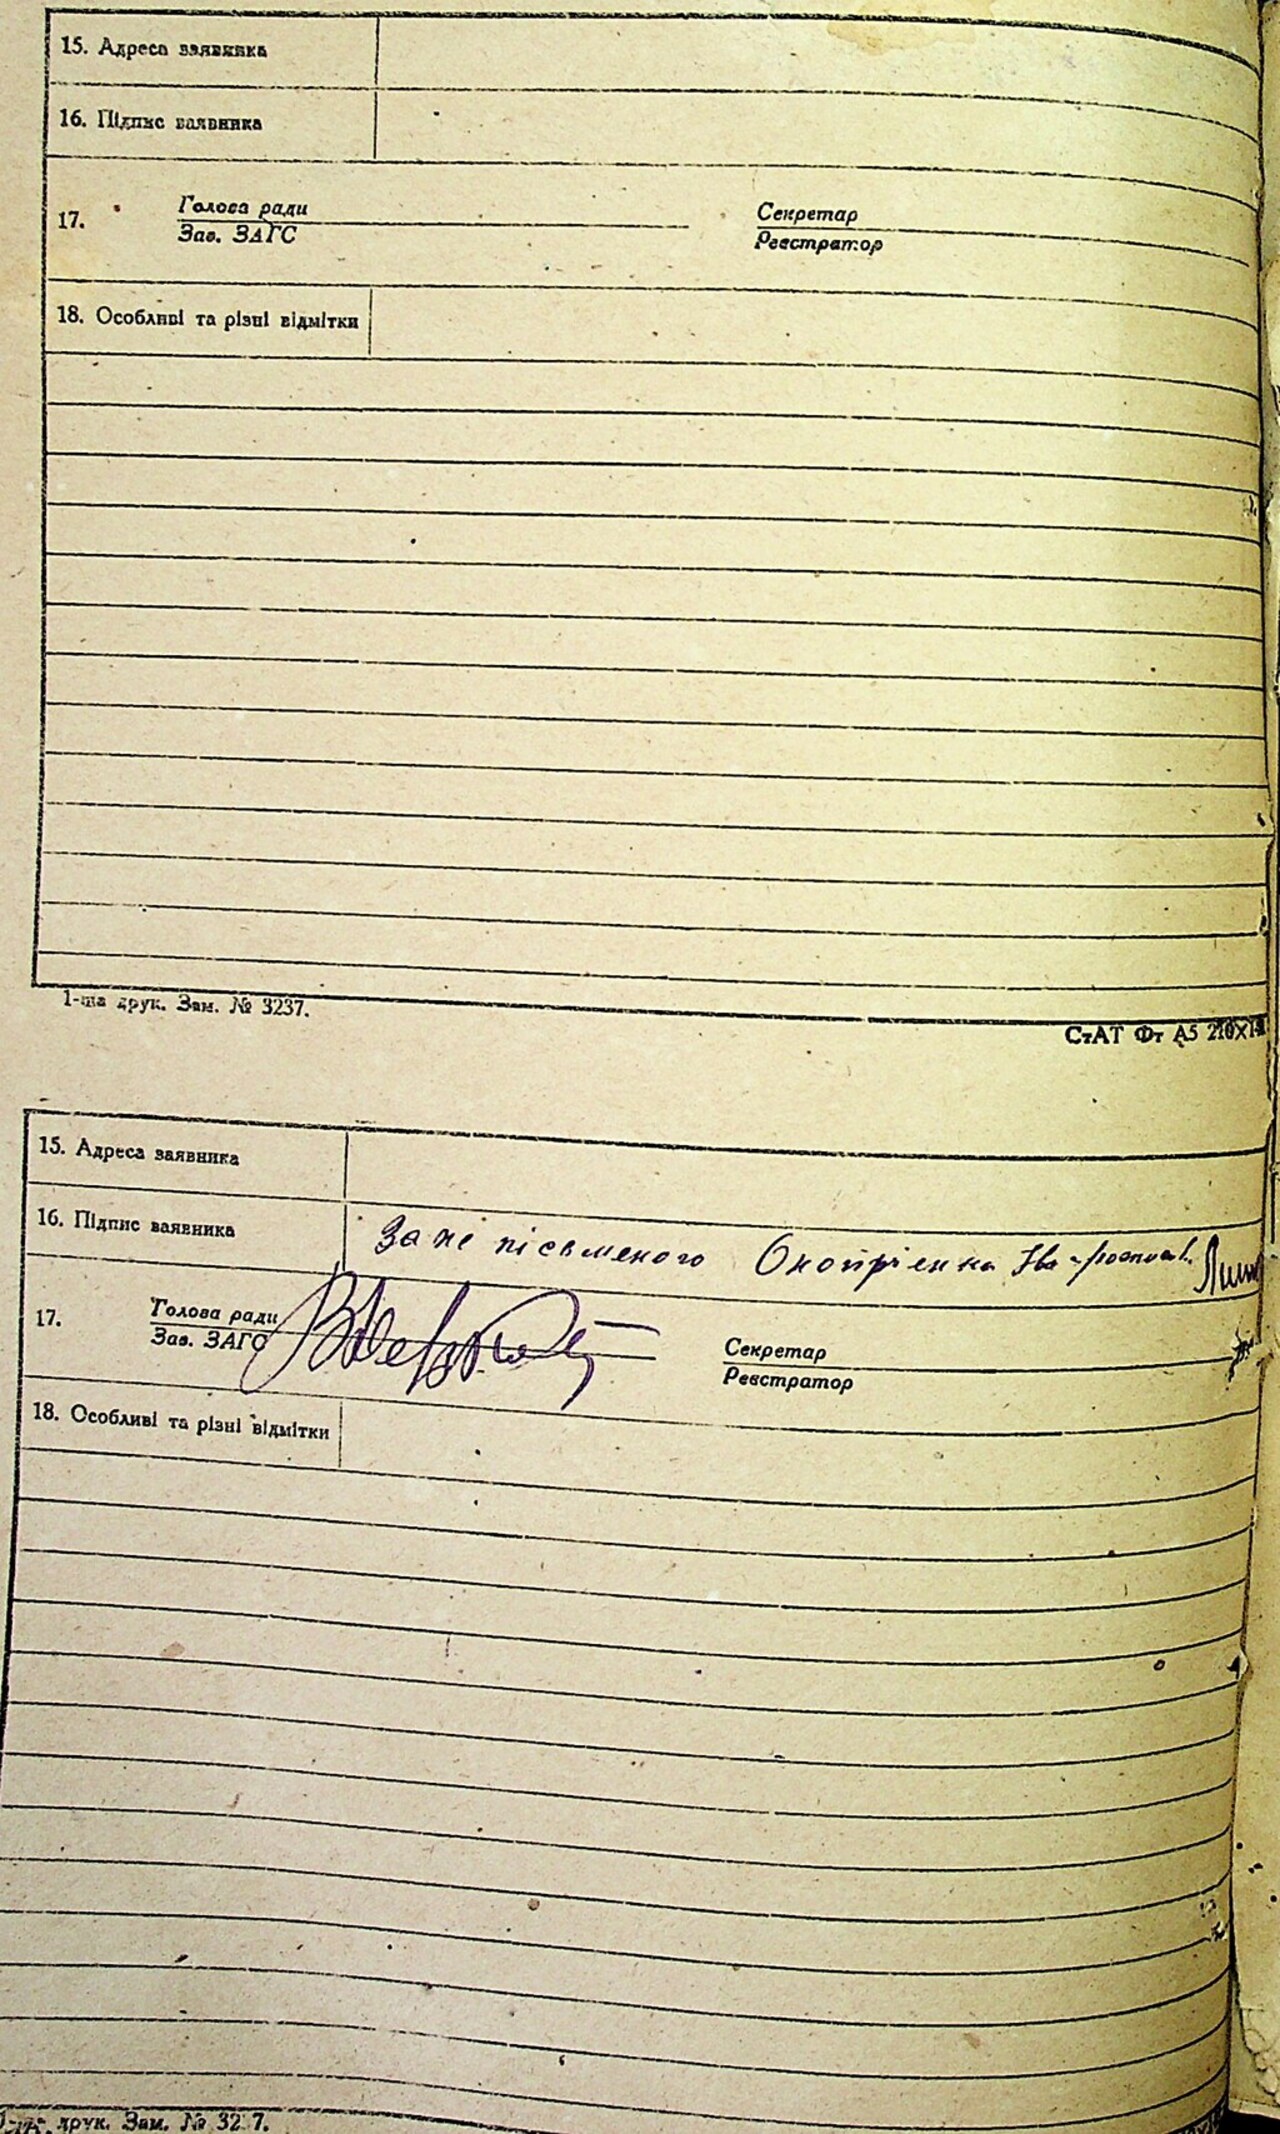 15. Адреса заявника
16. Підпис заявника
17. Голова ради
Зав. ЗАГС
Секретар
Реєстратор
18. Особливі та різні відмітки
1-ша друк. Зам. № 3237.
СтАТ Фт А5 210×14
15. Адреса заявника
16. Підпис заявника За не пісьменого
17. Голова ради
Зав. ЗАГС
Секретар
Реєстратор
18. Особливі та різні відмітки
друк. Зам. № 32 7.